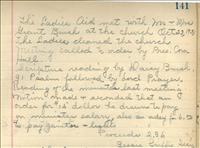 141
The Ladies Aid met with Mr + Mrs
Grant Bush at the church Oct 23, '35
The Ladies cleaned the church
Meeting called to order by Pres. Ora
Hall.
Scripture reading by Daisy Bush.
91 Psalm followed by Lord Prayer.
Reading of the minutes last meeting
Motion made + seconded that an
order for 15 dollar be drawn to pay
on ministers salary, also an order for 6.50
to pay janitor + light
Proceeds 2.96